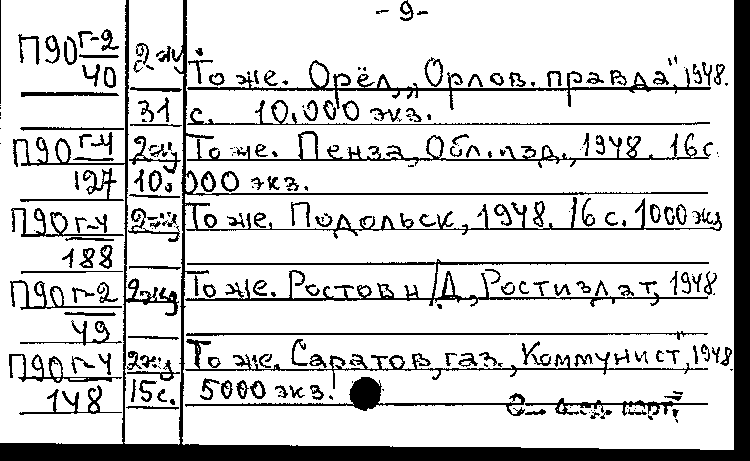 - 9 -
П90 Г-2/40 2эк То же. Орёл, „Орлов. правда", 1948.
31 с. 10.000 экз.
П90 Г-4/127 2эк То же. Пенза, Обл.изд., 1948. 16 с.
10.000 экз.
П90 Г-4/188 2эк То же. Подольск, 1948. 16 с. 1000 экз
П90 Г-2/49 2эк То же. Ростов н/Д, Ростиздат, 1948
П90 Г-4/148 2эк То же. Саратов, газ. „Коммунист", 1948
15 с. 5000 экз.
См. след. карт.